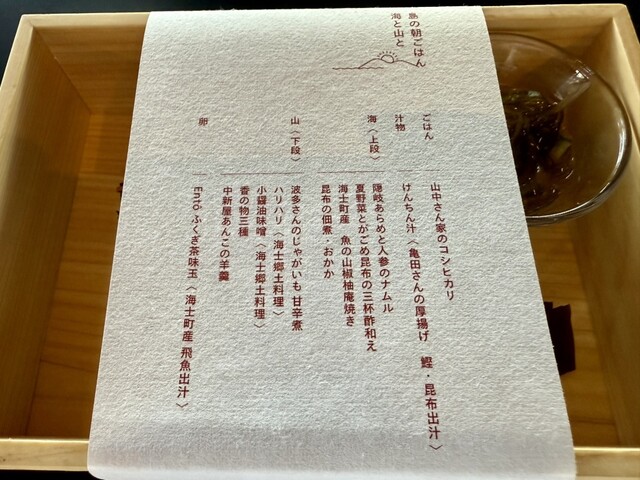 島の朝ごはん
海と山と
ごはん
山中さん家のコシヒカリ
汁物
けんちん汁〈亀田さんの厚揚げ 鰹・昆布出汁〉
海〈上段〉
隠岐あらめと人参のナムル
夏野菜とがごめ昆布の三杯酢和え
海士町産 魚の山椒柚庵焼き
昆布の佃煮・おかか
山〈下段〉
波多さんのじゃがいも 甘辛煮
ハリハリ〈海士郷土料理〉
小醤油味噌〈海士郷土料理〉
香の物三種
中新屋あんこの羊羹
卵
Entô ふくぎ茶味玉〈海士町産 飛魚出汁〉